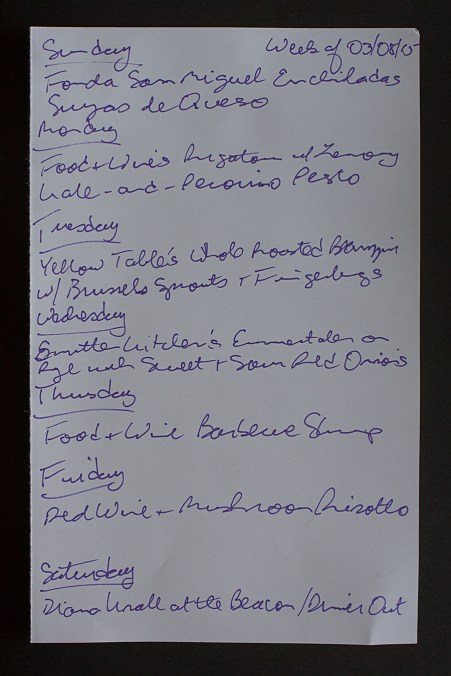 Sunday Week of 03/08/15
Fonda San Miguel Enchiladas
Suizas de Queso
Monday
Food + Wine's Rigatoni w/ Lemony
Kale-and-Pecorino Pesto
Tuesday
Yellow Table's Whole Roasted Branzini
w/ Brussels Sprouts + Fingerlings
Wednesday
Smitten Kitchen's Emmentaler on
Rye with Sweet + Sour Red Onions
Thursday
Food + Wine Barbecue Shrimp
Friday
Red Wine + Mushroom Risotto
Saturday
Diana Krall at the Beacon/Dinner Out